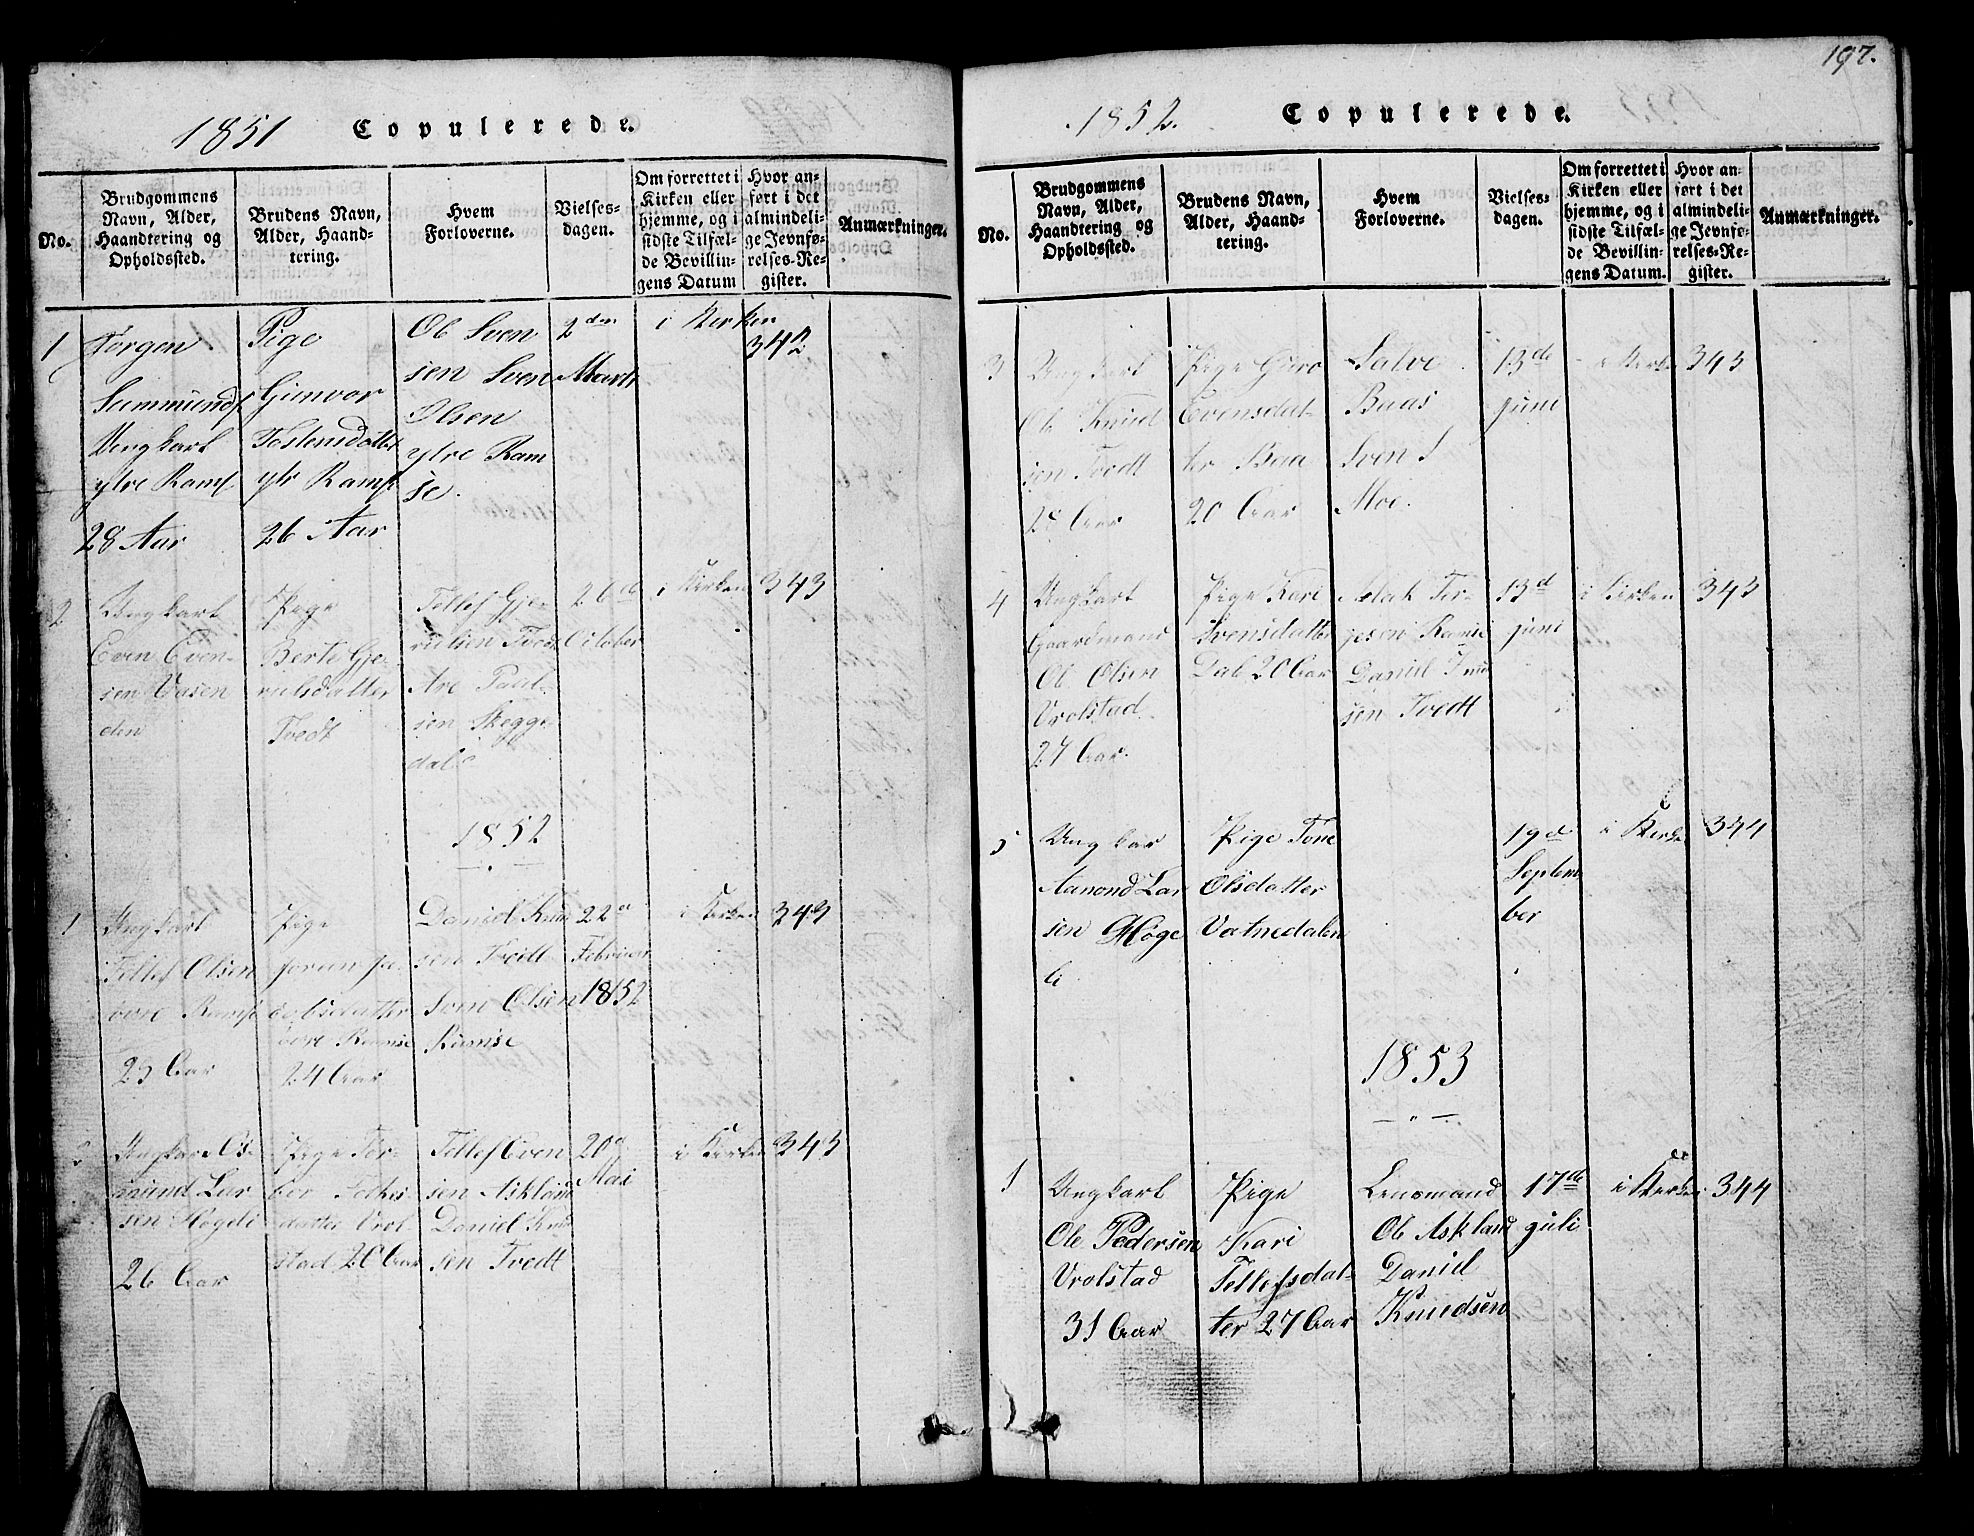 1851 Copulerede.
No.
Brudgommens
Navn, Alder,
Haandtering og
Opholdssted.
Brudens Navn,
Alder, Haand-
tering.
Hvem
Forloverne.
Vielses-
dagen.
Om forrettet i
Kirken eller
hjemme, og i
sidste Tilfæl-
de Bevillin-
gens Datum
Hvor an-
ført i det
almindeli-
ge Jevnfø-
relses-Re-
gister.
Anmærkninger.
1
Jørgen
Summunds
Ungkarl
ytre Rams
28 Aar
Pige
Gunvor
Tostensdatter
ytr Rams
26 Aar
Ole Sven
sen Sven
Olsen
ytre Ram
se.
2den
Marts
i Kirken
342
2
Ungkarl
Even Even-
sen Vasen
den
Pige
Berte Gje-
rulsdatter
Tvedt
Tellef Gje-
rulsen Tvedt
Are Paal-
sen Skegge-
dal
26de
October
i Kirken
343
1852
1
Ungkarl
Tellef Olsen
övre Rams
25 Aar
Pige
Jorun Ja-
cobsdatter
övre Ramse
24 Aar
Daniel Knu
sen Tvedt
Sven Olsen
Ramse
22d
Februar
1852
i Kirken
343
2
Ungkar Os-
mund Lar
sen Høgeli
26 Aar
Pige Tor-
bor
datter Vrol
stad 20 Aar
Tellef Even
sen Askland
Daniel Knu
sen Tvedt
20d
Mai
i Kirken
343
197.
1852. Copulerede.
No.
Brudgommens
Navn, Alder,
Haandtering og
Opholdssted.
Brudens Navn,
Alder, Haand-
tering.
Hvem
Forloverne.
Vielses-
dagen.
Om forrettet i
Kirken eller
hjemme, og i
sidste Tilfæl-
de Bevillin-
gens Datum.
Hvor an-
ført i det
almindeli-
ge Jevnfø-
relses-Re-
gister.
Anmærkninger.
3
Ungkarl
Ole Knud
sen Tvedt
25 Aar
Pige Guro
Evensdat-
ter Baa
20 Aar
Salve
Baas
Sven S
Moe.
13de
juni
i Kirken
343
4
Ungkarl
Gaardmand
Ole Olsen
Vrolstad
27 Aar.
Pige Kari
Svensdatter
Dal 20 Aar
Aslak Ter-
jesen Ramse
Daniel Knu
sen Tvedt
13d
juni
i Kirken
343
5
Ungkar
Aanond Lar
sen Høge
li
Pige Tone
Olsdatter
Vatnedalen
19d
Septem
ber
i Kirke
344
1853
1
Ungkarl
Ole Pedersen
Vrolstad
31 Aar
Pige
Kari
Tellefsdat-
ter 27 Aar
Lensmand
Ole Askland
Daniel
Knudsen
17de
juli
i Kirken
344